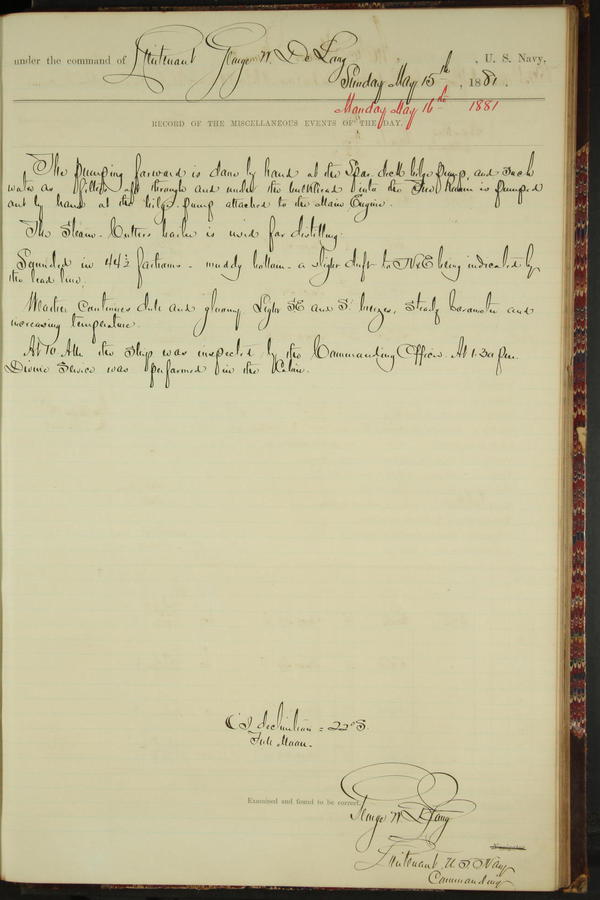 under the command of Lieutenant George W. De Long , U. S. Navy,
Sunday May 15th , 1881.
Monday May 16th 1881
RECORD OF THE MISCELLANEOUS EVENTS OF THE DAY.
The pumping forward is done by hand at the Spar deck bilge pump, and such
water as filters aft through and under the bulkhead into the Fire Room is pumped
out by hand at the bilge-pump attached to the Main Engine.
The Steam-Cutter's boiler is used for distilling.
Sounded in 44½ fathoms - muddy bottom - a slight drift to NxE being indicated by
the lead line.
Weather continues dull and gloomy. Light SE and S'. breezes, steady barometer and
increasing temperature.
At 10 AM the Ship was inspected by the Commanding Officer. At 1.30 pm
Divine Service was performed in the Cabin.
declination = 22° S.
Full Moon.
Examined and found to be correct.
George W. De Long
Navigator
Lieutenant, U.S. Navy
Commanding